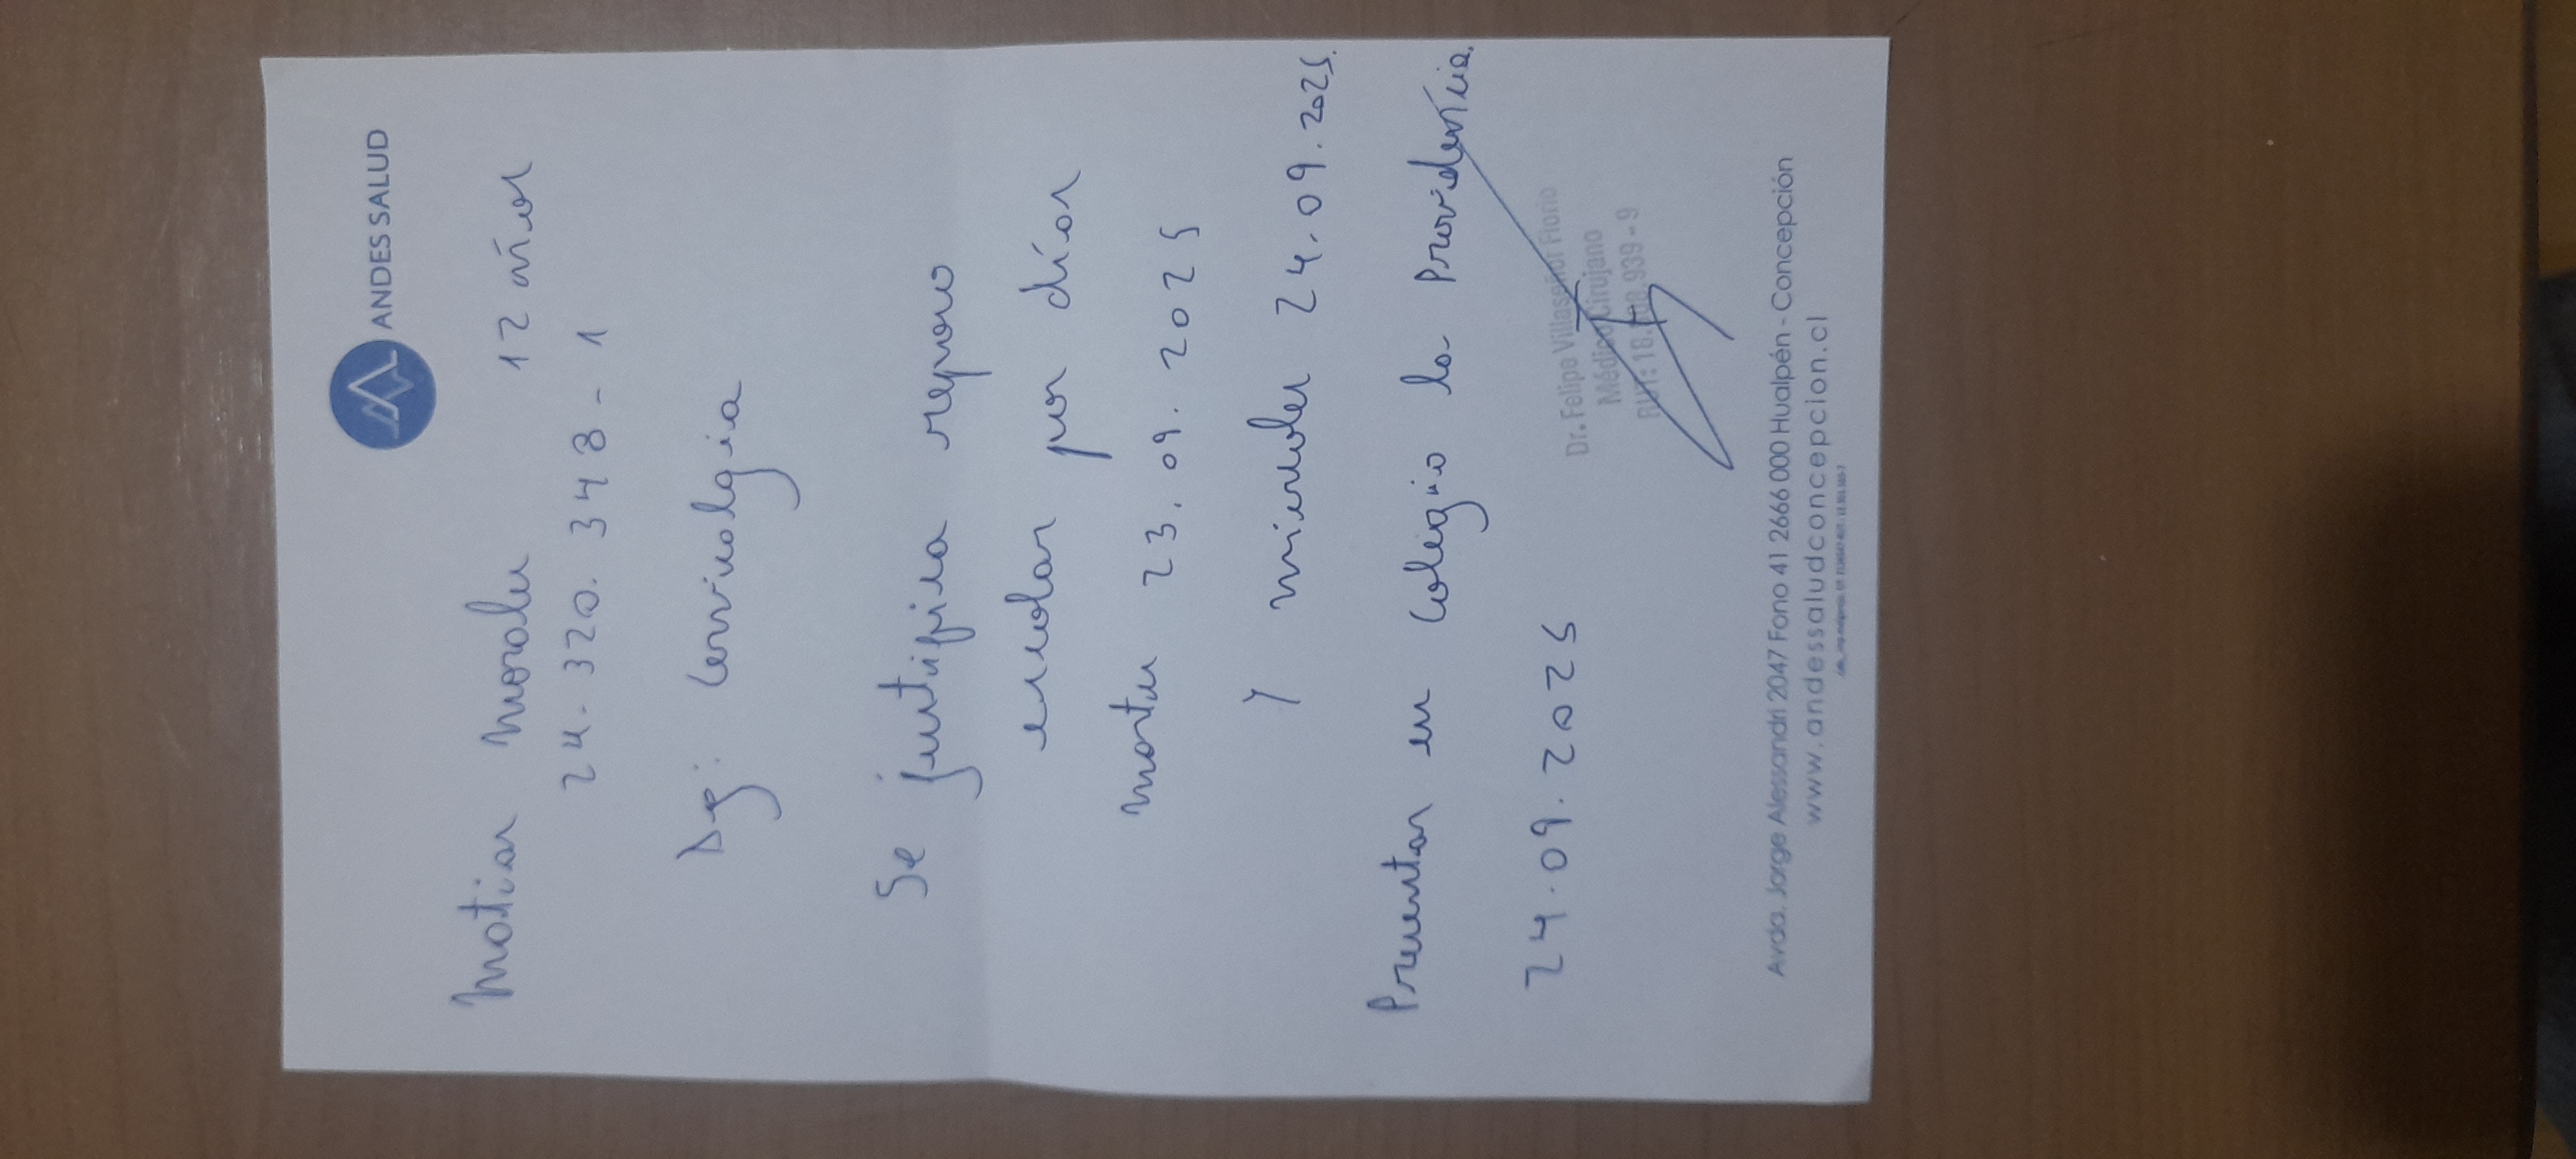 ANDES SALUD
Matias Morales 12 años
24.320.348-1
Dg: Cervicalgia
Se justifica reposo
escolar por días
martes 23.09.2025
y miercoles 24.09.2025.
Presentar en Colegio la Providencia.
24.09.2025
Dr. Felipe Villaseñor Fiorio
Médico Cirujano
RUT: 18. .939-9
Avda. Jorge Alessandri 2047 Fono 41 2666 000 Hualpén - Concepción
www.andessaludconcepcion.cl